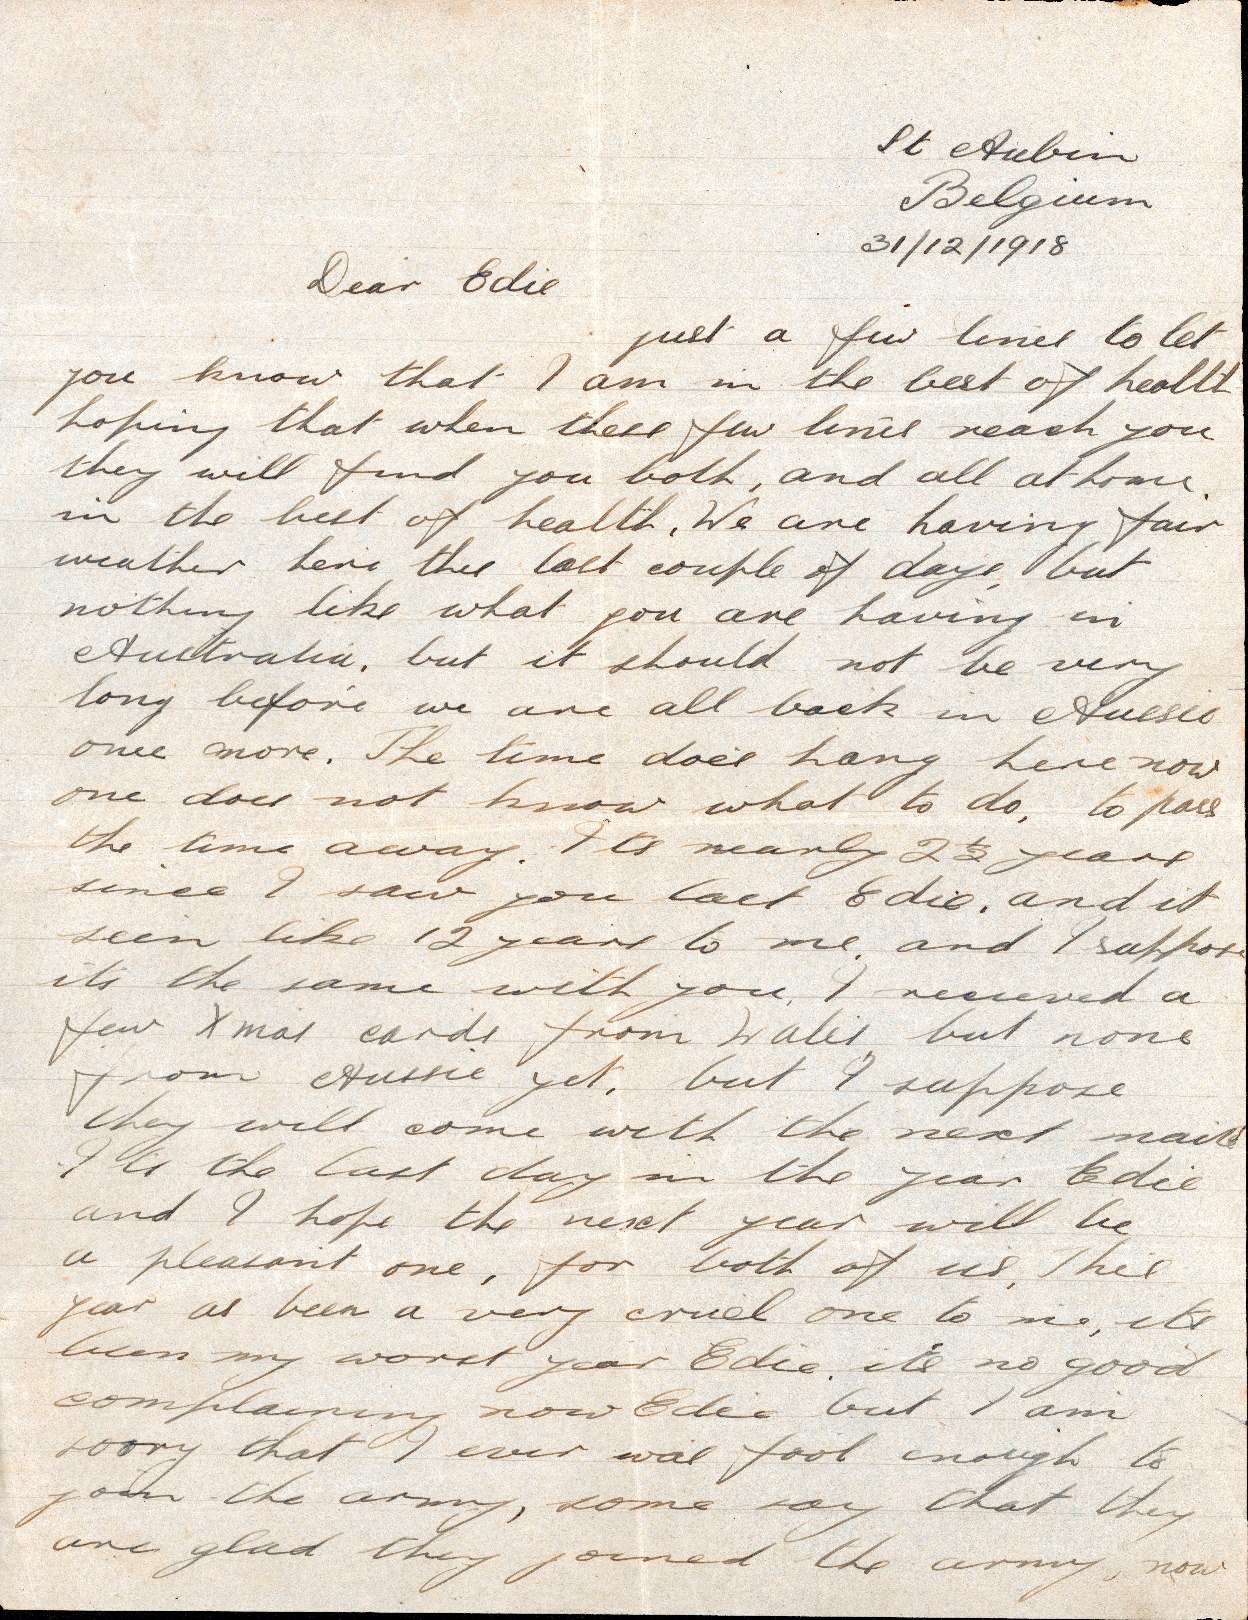 St Aubin
Belgium
31/12/1918
Dear Edie
just a few lines to let
you know that I am in the best of health
hoping that when these few lines reach you
they will find you both, and all at home.
in the best of health. We are having fair
weather here the last couple of days, but
nothing like what you are having in
Australia. but it should not be very
long before we are all back in Aussie
once more. The time does hang here now
one does not know what to do, to pass
the time away. Its nearly 2½ years
since I saw you last Edie. and it
seem like 12 years to me. and I suppose
its the same with you. I recieved a
few Xmas cards from Wales but none
from Aussie yet. but I suppose
they will come with the next mails
Its the last day in the year Edie
and I hope the next year will be
a pleasant one, for both of us. This
year as been a very cruel one to me, its
been my worst year Edie. it's no good
complaining now Edie but I am
soory that I ever was fool enough to
join the army, some say that they
are glad they joined the army, now